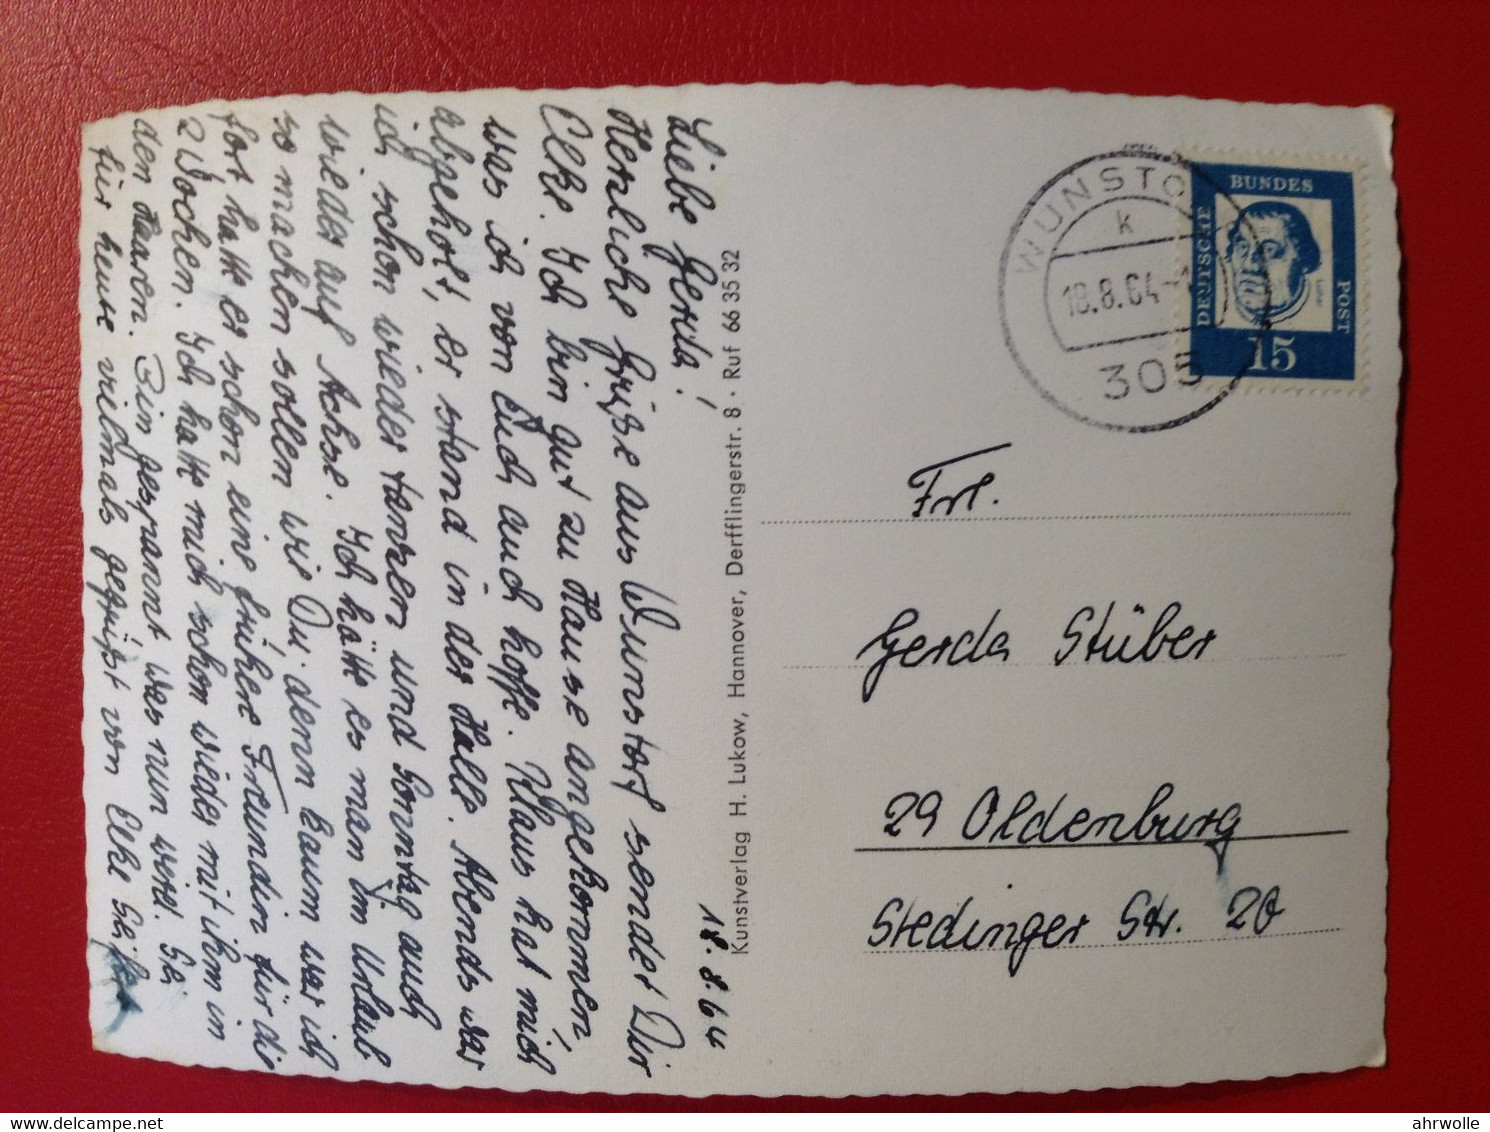 18.8.64
Liebe Gerda!
Herzliche Grüße aus Wunstorf sendet Dir
Elke. Ich bin gut zu Hause angekommen,
was ich von Euch auch hoffe. Klaus hat mich
abgeholt, er stand in der Halle. Abends war
ich schon wieder tanzen und Sonntag auch
wieder auf Achse. Ich hätte es man im Urlaub
so machen sollen wie Du, denn kaum war ich
fort hatte er schon eine frühere Freundin für die
2 Wochen. Ich hatte mich schon wieder mit ihm in
den Haaren. Bin gespannt was nun wird. Sei
für heute vielmals gegrüßt von Elke
Kunstverlag H. Lukow, Hannover, Derfflingerstr. 8 · Ruf 66 35 32
WUNSTO
k
18.8.64
305
DEUTSCHE
BUNDES
POST
Luther
15
Frl.
Gerda Stüber
29 Oldenburg
Stedinger Str. 20
ahrwolle